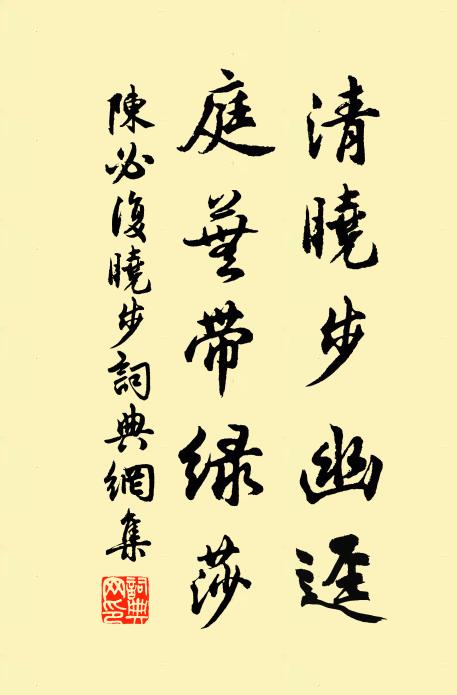 清曉步幽逕
庭蕪帶綠莎
陳必復曉步詞典網集
詞典